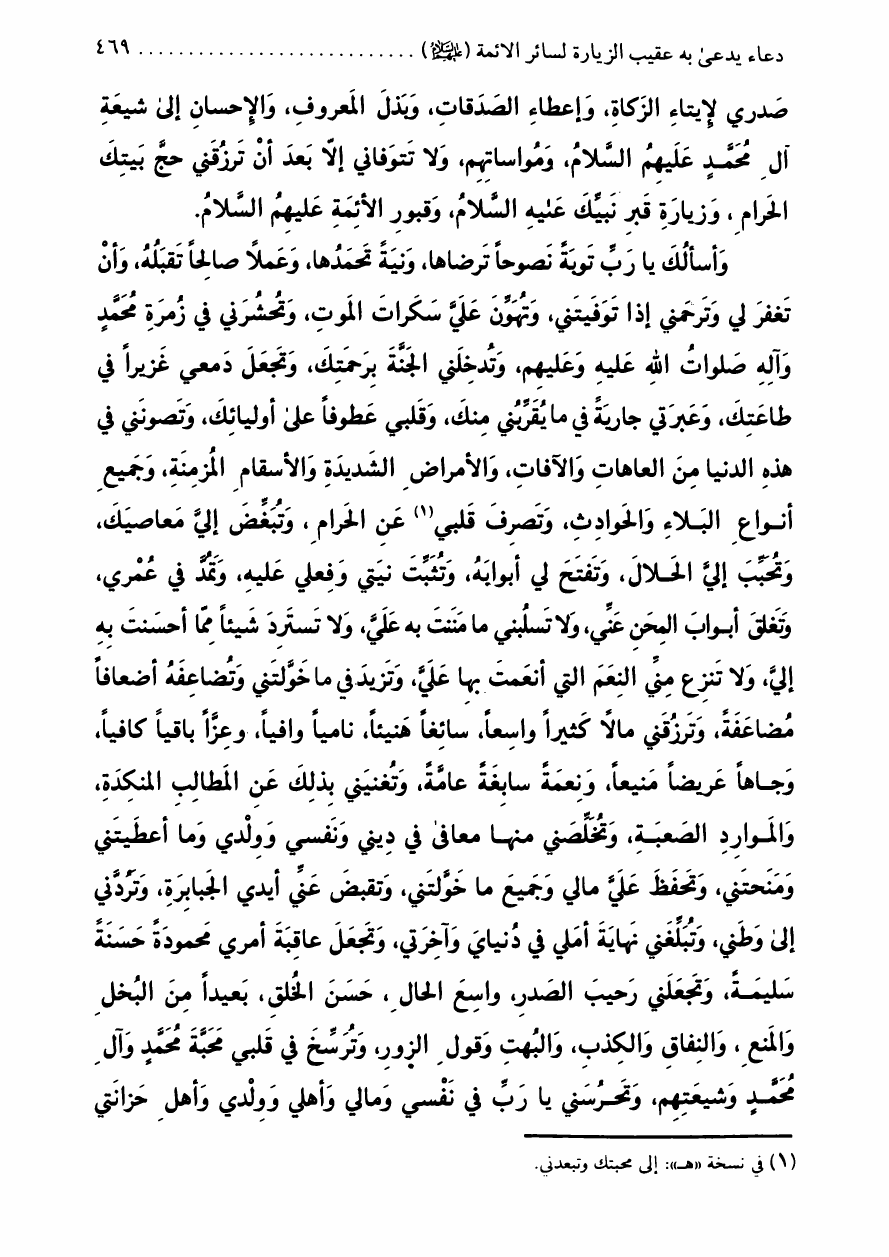 دعاء يدعىٰ به عقيب الزيارة لسائر الائمة (عليهم السلام) ............................ ٤٦٩
صَدري لإيتاءِ الزَكاةِ، وَإعطاءِ الصَدَقاتِ، وَبَذلَ المَعروفِ، وَالإحسانِ إلىٰ شيعَةِ
آلِ مُحَمَّـدٍ عَلَيهِمُ السَّلامُ، وَمُواساتِهِم، وَلا تَتوَفاني إلّا بَعدَ أنْ تَرزُقَني حجَّ بَيتِكَ
الحَرامِ، وَزيارَةِ قَبرِ نَبيِّكَ عَلَيهِ السَّلامُ، وَقبورِ الأئِمَةِ عَليهِمُ السَّلامُ.
وَأسألُكَ يا رَبِّ تَوبَةً نَصوحاً تَرضاها، وَنيَةً تَحمَدُها، وَعَملاً صالِحاً تَقبَلُهُ، وَأنْ
تَغفرَ لي وَتَرحَمني إذا تَوَفَيتَني، وَتُهَوِّنَ عَلَيَّ سَكَراتَ المَوتِ، وَتَحشُرَني في زُمرَةِ مُحَمَّدٍ
وَآلِهِ صَلواتُ اللهِ عَليهِ وَعَليهِم، وَتُدخِلَني الجَنَّةَ بِرَحمَتِكَ، وَتَجعَلَ دَمعي غَزيراً في
طاعَتِكَ، وَعَبرَتي جاريَةً في ما يُقَرِّبُني مِنكَ، وَقَلبي عَطوفاً علىٰ أوليائِكَ، وَتَصونَني في
هذهِ الدنيا مِنَ العاهاتِ وَالآفاتِ، وَالأمراضِ الشَديدَةِ وَالأسقامِ المُزمِنَةِ، وَجَميعِ
أنـواعِ البَـلاءِ وَالحَوادِثِ، وَتَصرِفَ قَلبي(١) عَنِ الحَرامِ، وَتُبَغِّضَ إليَّ مَعاصيَكَ،
وَتُحَبِّبَ إليَّ الحَـلالَ، وَتَفتَحَ لي أبوابَهُ، وَتُثَبِّتَ نيَتي وَفِعلي عَليهِ، وَتَمُدَّ في عُمْري،
وَتَغلقَ أبـوابَ المِحَنِ عَنِّي، وَلا تَسلُبني ما مَنَنتَ به عَلَيَّ، وَلا تَستَرِدَ شَيئاً مِمّا أحسَنتَ بِهِ
إليَّ، وَلا تَنزِع مِنِّي النِعَمَ التي أنعَمتَ بها عَلَيَّ، وَتَزيدَ في ما خَوَّلتَني وَتُضاعِفَهُ أضعافاً
مُضاعَفَةً، وَتَرزُقَني مالاً كَثيراً واسِعاً، سائِغاً هَنيئاً، نامياً وافياً، وعِزّاً باقياً كافياً،
وَجـاهاً عَريضاً مَنيعاً، وَنِعمَةً سابِغَةً عامَّةً، وَتُغنيَني بِذلِكَ عَنِ المَطالِبِ المنكِدَةِ،
وَالمَـوارِدِ الصَعبَـةِ، وَتُخَلِّصَني منهـا معافىٰ في ديني وَنَفسي وَولْدي وَما أعطَيتَني
وَمَنَحتَني، وَتَحفَظَ عَلَيَّ مالي وَجَميعَ ما خَوَّلتَني، وَتقبضَ عَنِّي أيدي الجَبابِرَةِ، وَتَرُدَّني
إلىٰ وَطَني، وَتُبَلِّغَني نهايَةَ أمَلي في دُنيايَ وَآخِرَتي، وَتَجعَلَ عاقِبَةَ أمري مَحمودَةً حَسَنَةً
سَليمَـةً، وَتَجعَلَني رَحيبَ الصَدرِ، واسِعَ الحالِ، حَسَنَ الخُلقِ، بَعيداً مِنَ البُخلِ
وَالمَنعِ، وَالنِفاقِ وَالكِذبِ، وَالبُهتِ وَقولِ الزورِ، وَتُرَسِّخَ في قَلبي مَحَبَّةَ مُحَمَّدٍ وَآلِ
مُحَمَّـدٍ وَشيعَتِهِم، وَتَحـرُسَني يا رَبِّ في نَفْسي وَمالي وَأهلي وَولْدي وَأهلِ حَزانَتي
(١) في نسخة «هـ»: إلى محبتك وتبعدني.